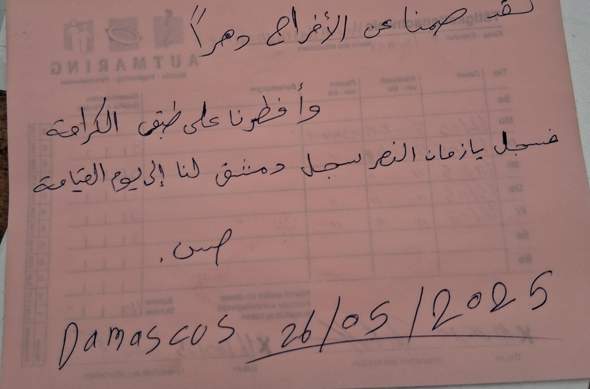 لقد صمنا عن الأفراح دهراً
وأفطرنا على طبق الكرامة
فسجل يا زمان النصر سجل دمشق لنا إلى يوم القيامة
Damascus 26/05/2025